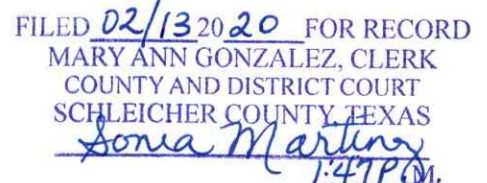 FILED 02/13 2020 FOR RECORD
MARY ANN GONZALEZ, CLERK
COUNTY AND DISTRICT COURT
SCHLEICHER COUNTY, TEXAS
Sonia Martinez
1:47 P.M.